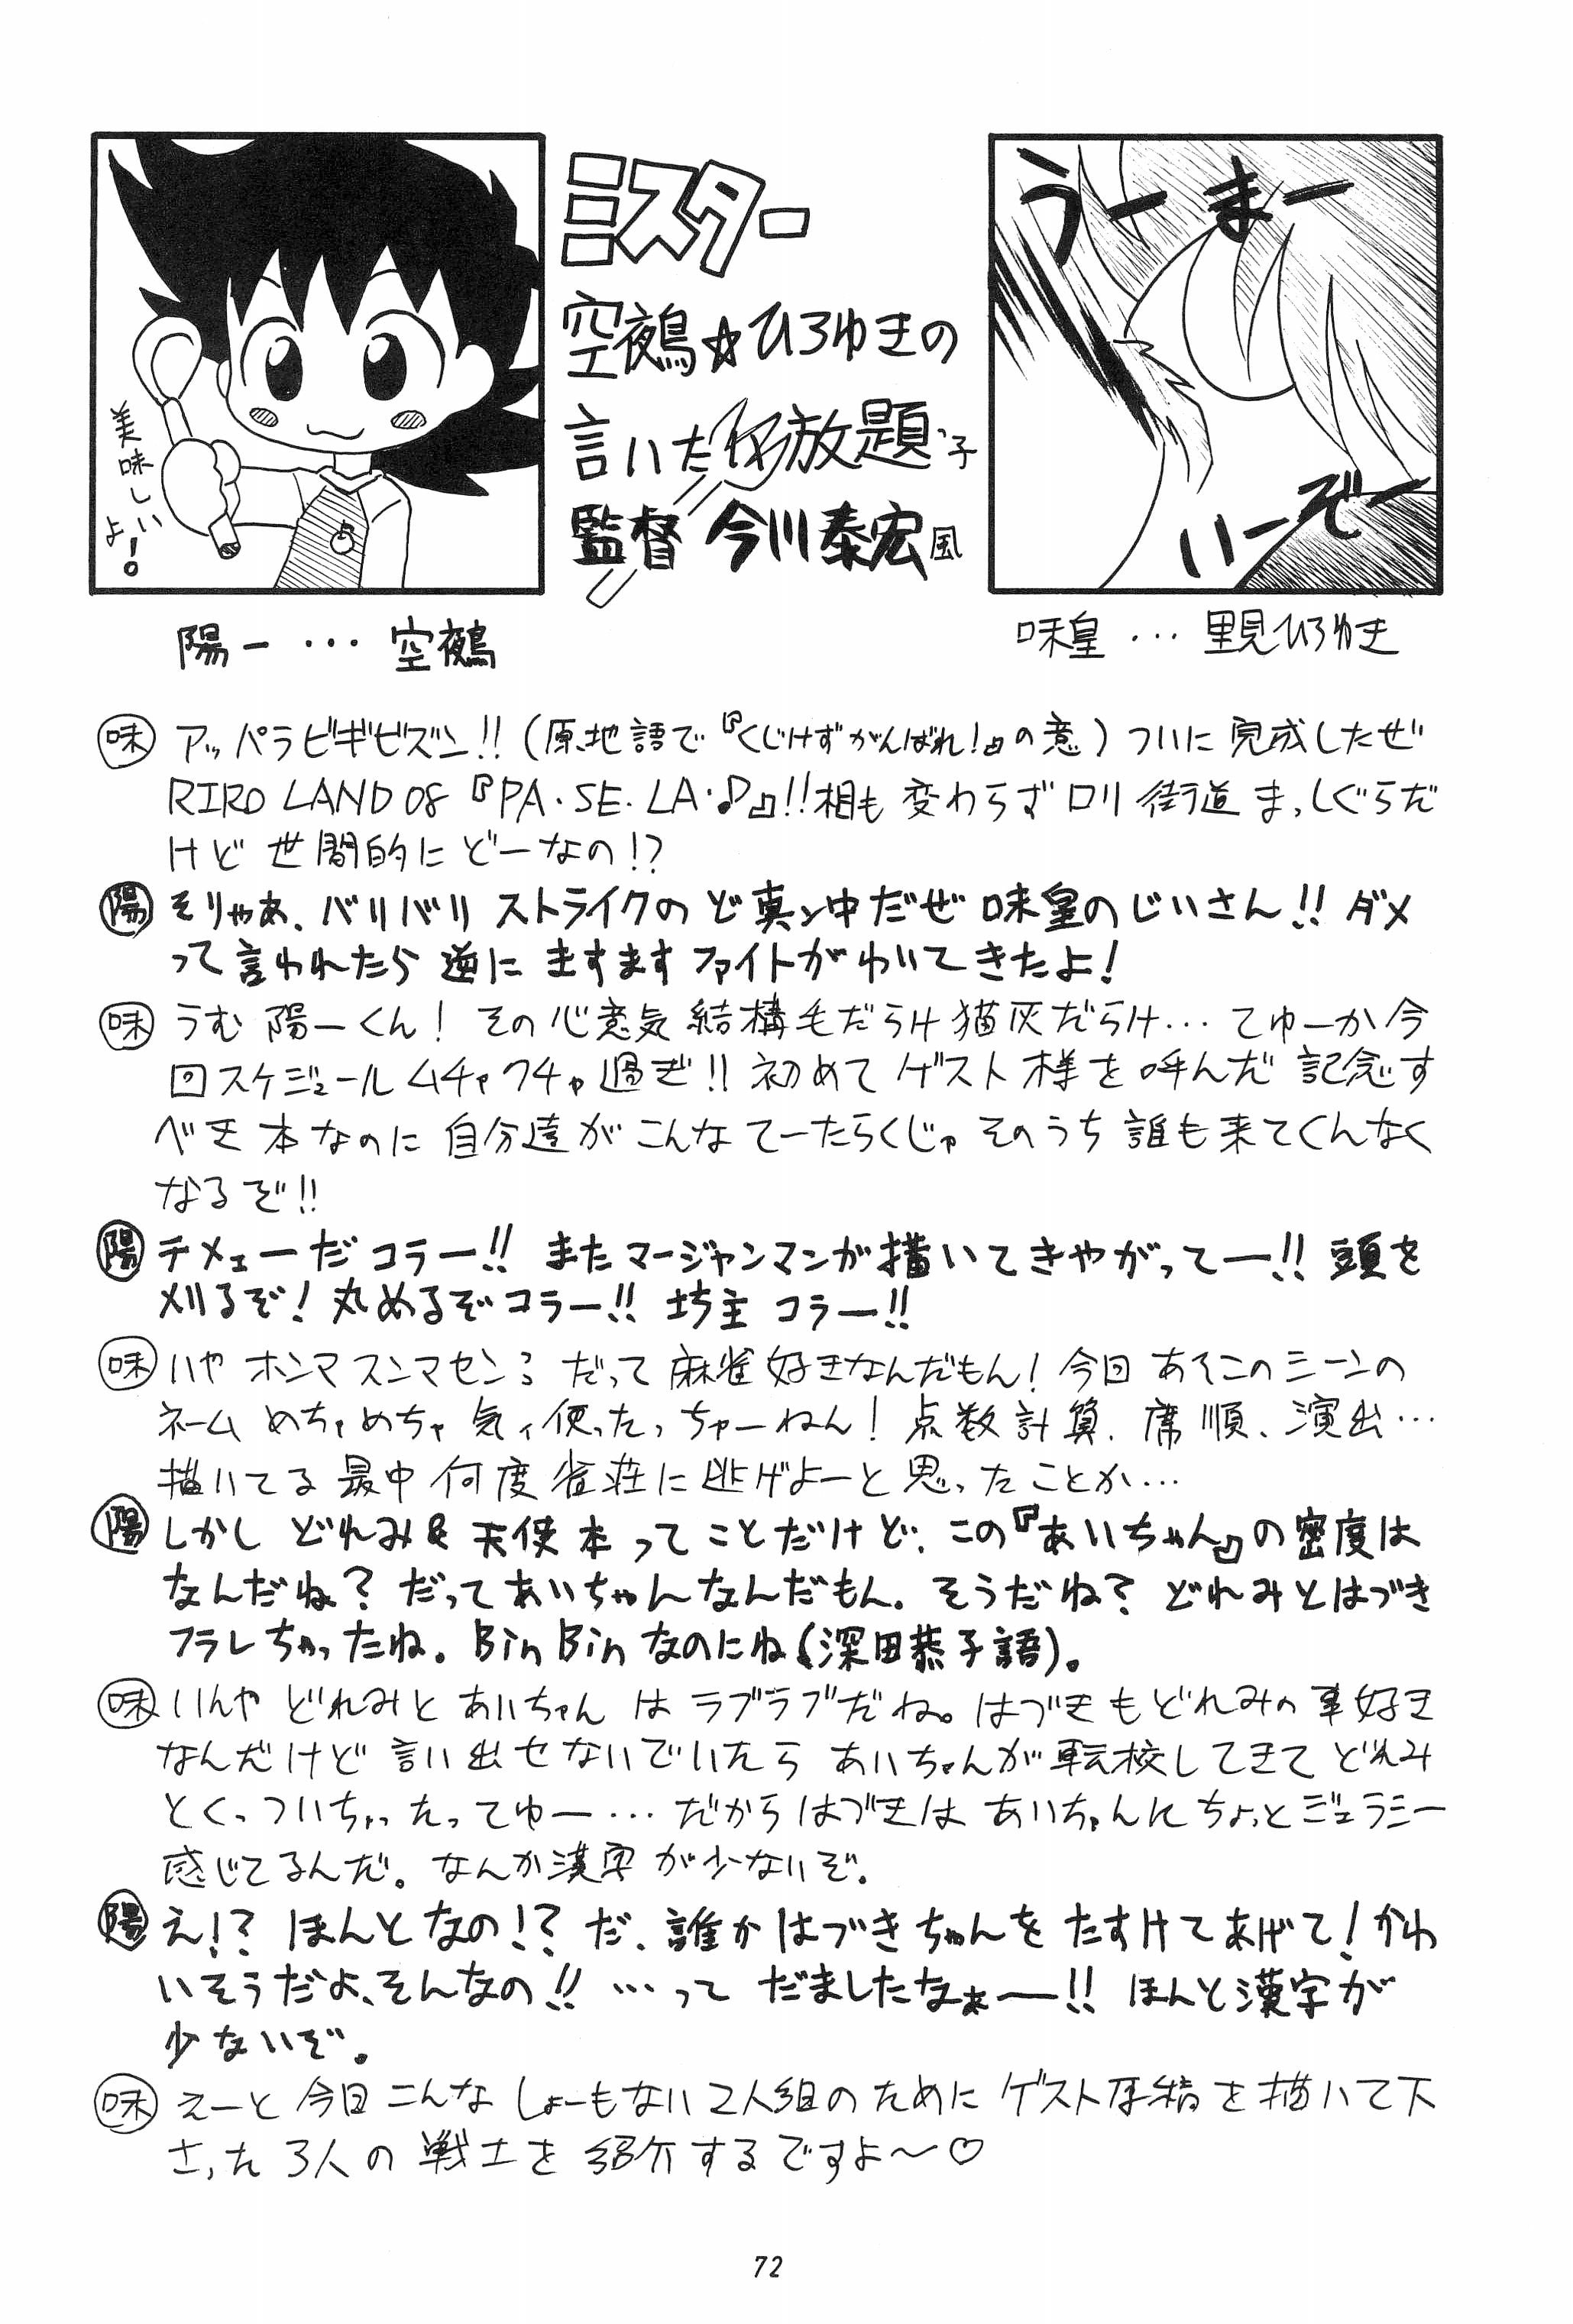 ミスター
空鵺☆ひろゆきの
言いたい放題 子
監督 今川泰宏風
美味しいよ!
うーまー
いーぞー
陽一…空鵺
味皇…里見ひろゆき
味 アッパラビギビズン!!(原地語で『くじけずがんばれ!』の意)ついに完成したぜ
RIRO LAND 08『PA・SE・LA・♪』!!相も変わらずロリ街道まっしぐらだ
けど世間的にどーなの!?
陽 そりゃあ、バリバリストライクのど真ン中だぜ味皇のじいさん!!ダメ
って言われたら逆にますますファイトがわいてきたよ!
味 うむ陽一くん!その心意気結構毛だらけ猫灰だらけ…てゆーか今
回スケジュールムチャクチャ過ぎ!!初めてゲスト様を呼んだ記念す
べき本なのに自分達がこんなてーたらくじゃそのうち誰も来てくんなく
なるぞ!!
陽 テメェーだコラー!!またマージャンマンが描いてきやがってー!!頭を
刈るぞ!丸めるぞコラー!!坊主コラー!!
味 いやホンマスンマセン; だって麻雀好きなんだもん!今回あそこのシーンの
ネームめちゃめちゃ気ィ使ったっちゅーねん!点数計算、席順、演出…
描いてる最中何度雀荘に逃げよーと思ったことか…
陽 しかしどれみ&天使本ってことだけど、この『あいちゃん』の密度は
なんだね?だってあいちゃんなんだもん。そうだね?どれみとはづき
フラレちゃったね。Bin Binなのにね(深田恭子語)。
味 いんやどれみとあいちゃんはラブラブだね。はづきもどれみの事好き
なんだけど言い出せないでいたらあいちゃんが転校してきてどれみ
とくっついちゃったってゆー…だからはづきはあいちゃんにちょっとジェラシー
感じてるんだ。なんか漢字が少ないぞ。
陽 え!?ほんとなの!?だ、誰かはづきちゃんをたすけてあげて!かわ
いそうだよ、そんなの!!…ってだましたなぁー!!ほんと漢字が
少ないぞ。
味 えーと今回こんなしょーもない2人組のためにゲスト原稿を描いて下
さった3人の戦士を紹介するですよ〜♡
72